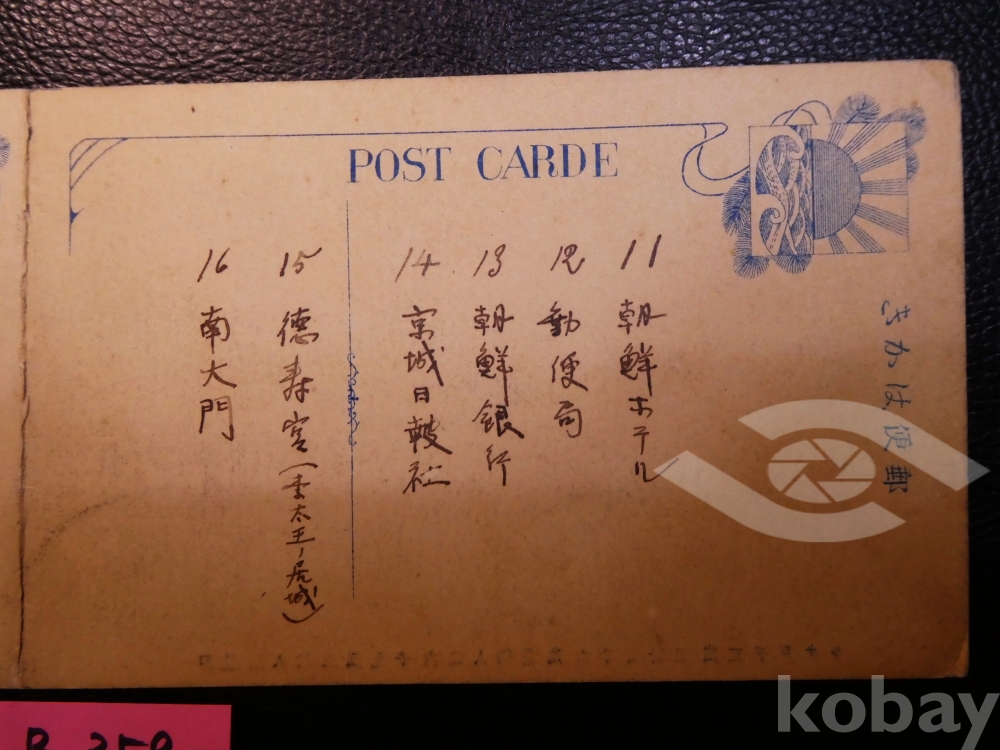 POST CARDE
きかは便郵
11 朝鮮ホテル
12 郵便局
13 朝鮮銀行
14 京城日報社
15 德寿宮(李太王ノ居城)
16 南大門
kobay